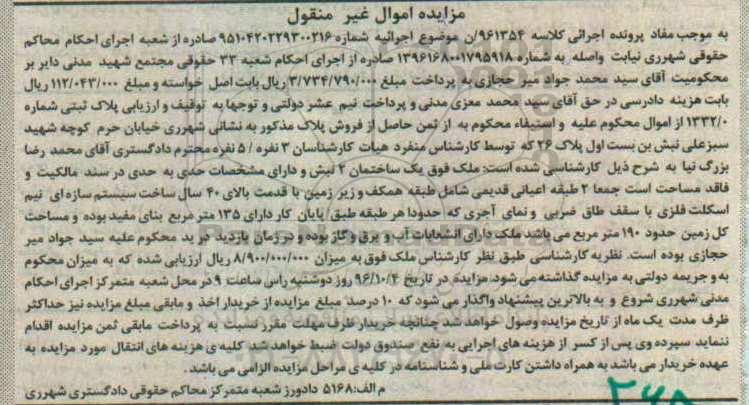 مزایده اموال غیر منقول
به موجب مفاد پرونده اجرائی کلاسه ۹۶۱۳۵۴/ن موضوع اجرائیه شماره ۹۵۱۰۴۲۰۲۲۹۳۰۰۲۱۶ صادره از شعبه اجرای احکام محاکم
حقوقی شهرری نیابت واصله به شماره ۱۳۹۶۱۶۸۰۰۱۷۹۵۹۱۸ صادره از اجرای احکام شعبه ۳۳ حقوقی مجتمع شهید مدنی دایر بر
محکومیت آقای سید محمد جواد میر حجازی به پرداخت مبلغ ۳/۷۳۴/۷۹۰/۰۰۰ ریال بابت اصل خواسته و مبلغ ۱۱۲/۰۴۳/۰۰۰ ریال
بابت هزینه دادرسی در حق آقای سید محمد معزی مدنی و پرداخت نیم عشر دولتی و توجها به توقیف و ارزیابی پلاک ثبتی شماره
۱۳۳۲/۰ از اموال محکوم علیه و استیفاء محکوم به از ثمن حاصل از فروش پلاک مذکور به نشانی شهرری خیابان حرم کوچه شهید
سبزعلی نبش بن بست اول پلاک ۲۶ که توسط کارشناس منفرد هیات کارشناسان ۳ نفره / ۵ نفره محترم دادگستری آقای محمد رضا
بزرگ نیا به شرح ذیل کارشناسی شده است: ملک فوق یک ساختمان ۲ نبش و دارای مشخصات حدی به حدی در سند مالکیت و
فاقد مساحت است جمعا ۲ طبقه اعیانی قدیمی شامل طبقه همکف و زیر زمین با قدمت بالای ۴۰ سال ساخت سیستم سازه ای نیم
اسکلت فلزی با سقف طاق ضربی و نمای آجری که حدودا هر طبقه طبق پایان کار دارای ۱۳۵ متر مربع بنای مفید بوده و مساحت
کل زمین حدود ۱۹۰ متر مربع می باشد ملک دارای انشعابات آب و برق و گاز بوده و در زمان بازدید در ید محکوم علیه سید جواد میر
حجازی بوده است. نظریه کارشناسی طبق نظر کارشناس ملک فوق به میزان ۸/۹۰۰/۰۰۰/۰۰۰ ریال ارزیابی شده که به میزان محکوم
به و جریمه دولتی به مزایده گذاشته می شود. مزایده در تاریخ ۹۶/۱۰/۴ روز دوشنبه راس ساعت ۹ در محل شعبه متمرکز اجرای احکام
مدنی شهرری شروع و به بالاترین پیشنهاد واگذار می شود که ۱۰ درصد مبلغ مزایده از خریدار اخذ و مابقی مبلغ مزایده نیز حداکثر
ظرف مدت یک ماه از تاریخ مزایده وصول خواهد شد چنانچه خریدار ظرف مهلت مقرر نسبت به پرداخت مابقی ثمن مزایده اقدام
ننماید سپرده وی پس از کسر از هزینه های اجرایی به نفع صندوق دولت ضبط خواهد شد کلیه ی هزینه های انتقال مورد مزایده به
عهده خریدار می باشد به همراه داشتن کارت ملی و شناسنامه در کلیه ی مراحل مزایده الزامی می باشد.
م الف: ۵۱۶۸ دادورز شعبه متمرکز محاکم حقوقی دادگستری شهرری